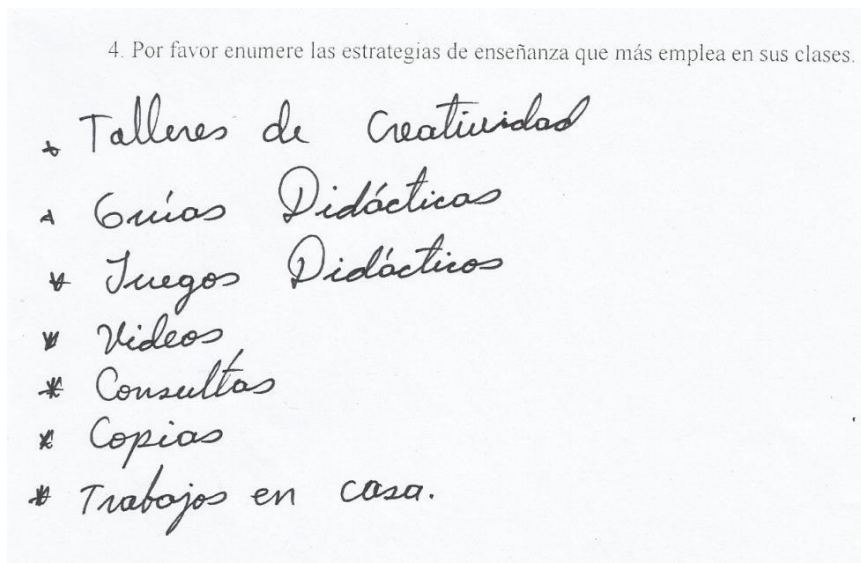 4. Por favor enumere las estrategias de enseñanza que más emplea en sus clases.
* Talleres de Creatividad
* Guías Didácticas
* Juegos Didácticos
* Videos
* Consultas
* Copias
* Trabajos en casa.